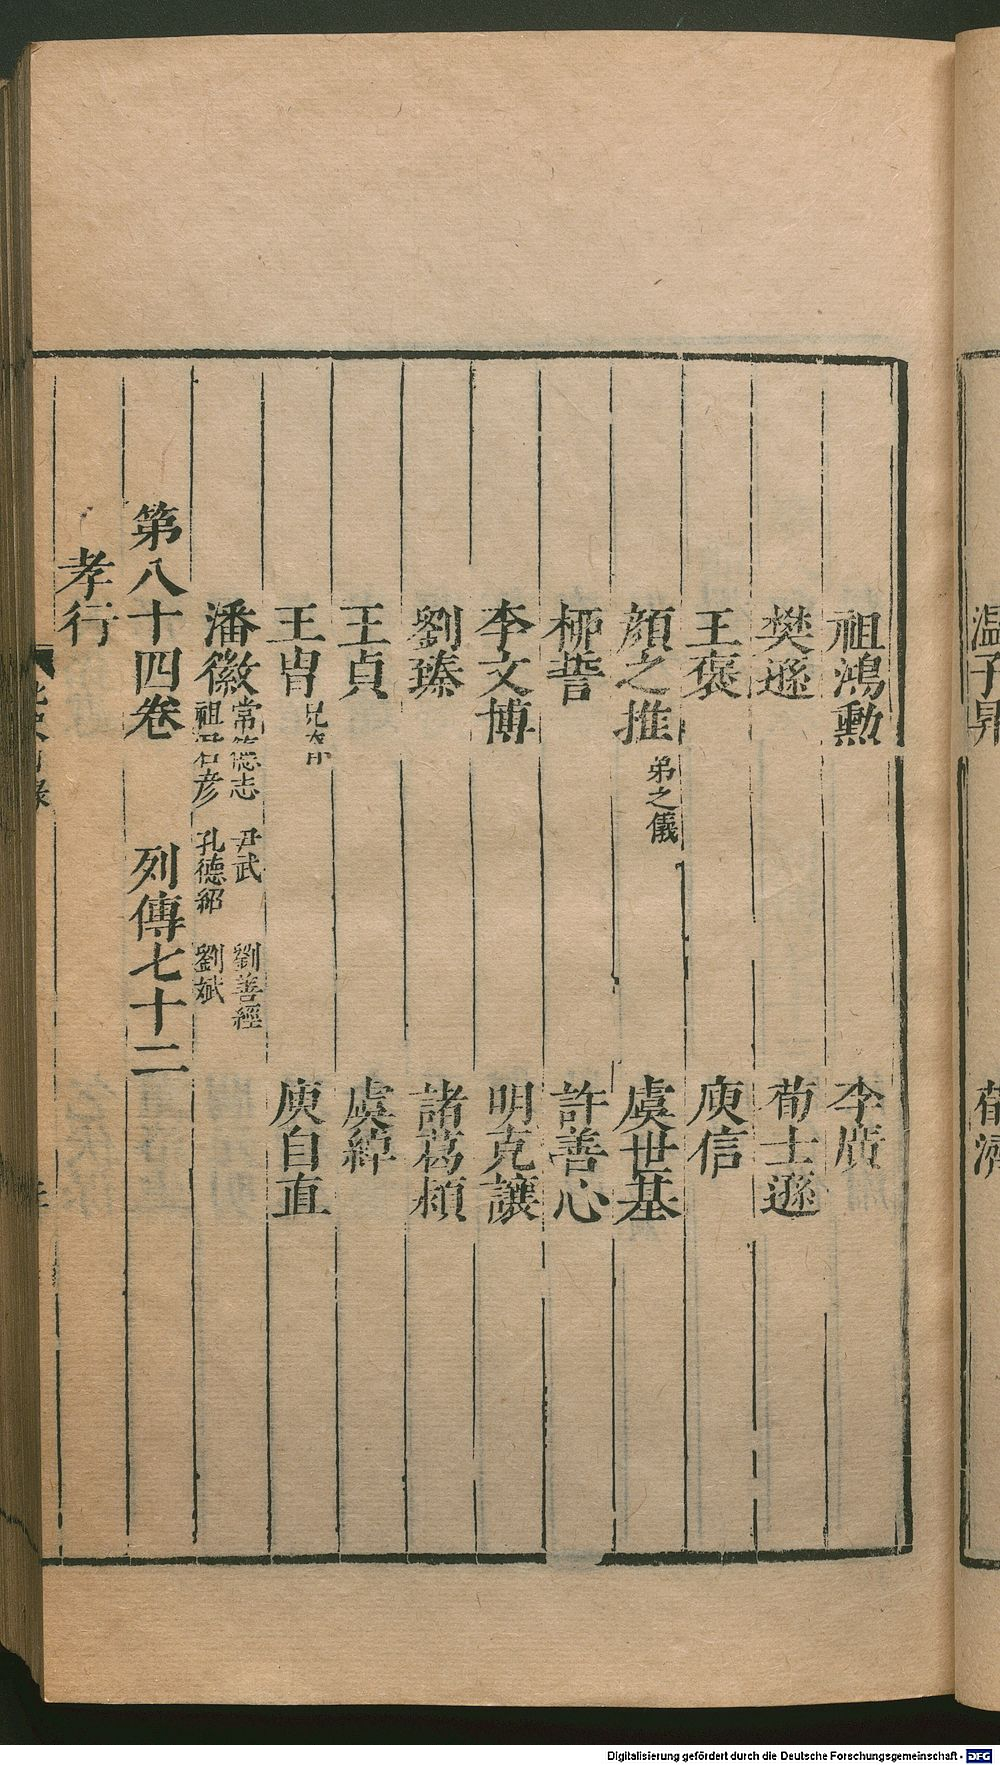 温子昇 荀濟
祖鴻勳 李廣
樊遜 荀士遜
王褒 庾信
顏之推 弟之儀 虞世基
柳䛒 許善心
李文博 明克讓
劉臻 諸葛頴
王貞 虞綽
王胄 兄眘 庾自直
潘徽 常德志 尹式 劉善經
祖君彦 孔德紹 劉斌
第八十四卷 列傳七十二
孝行
Digitalisierung gefördert durch die Deutsche Forschungsgemeinschaft - DFG